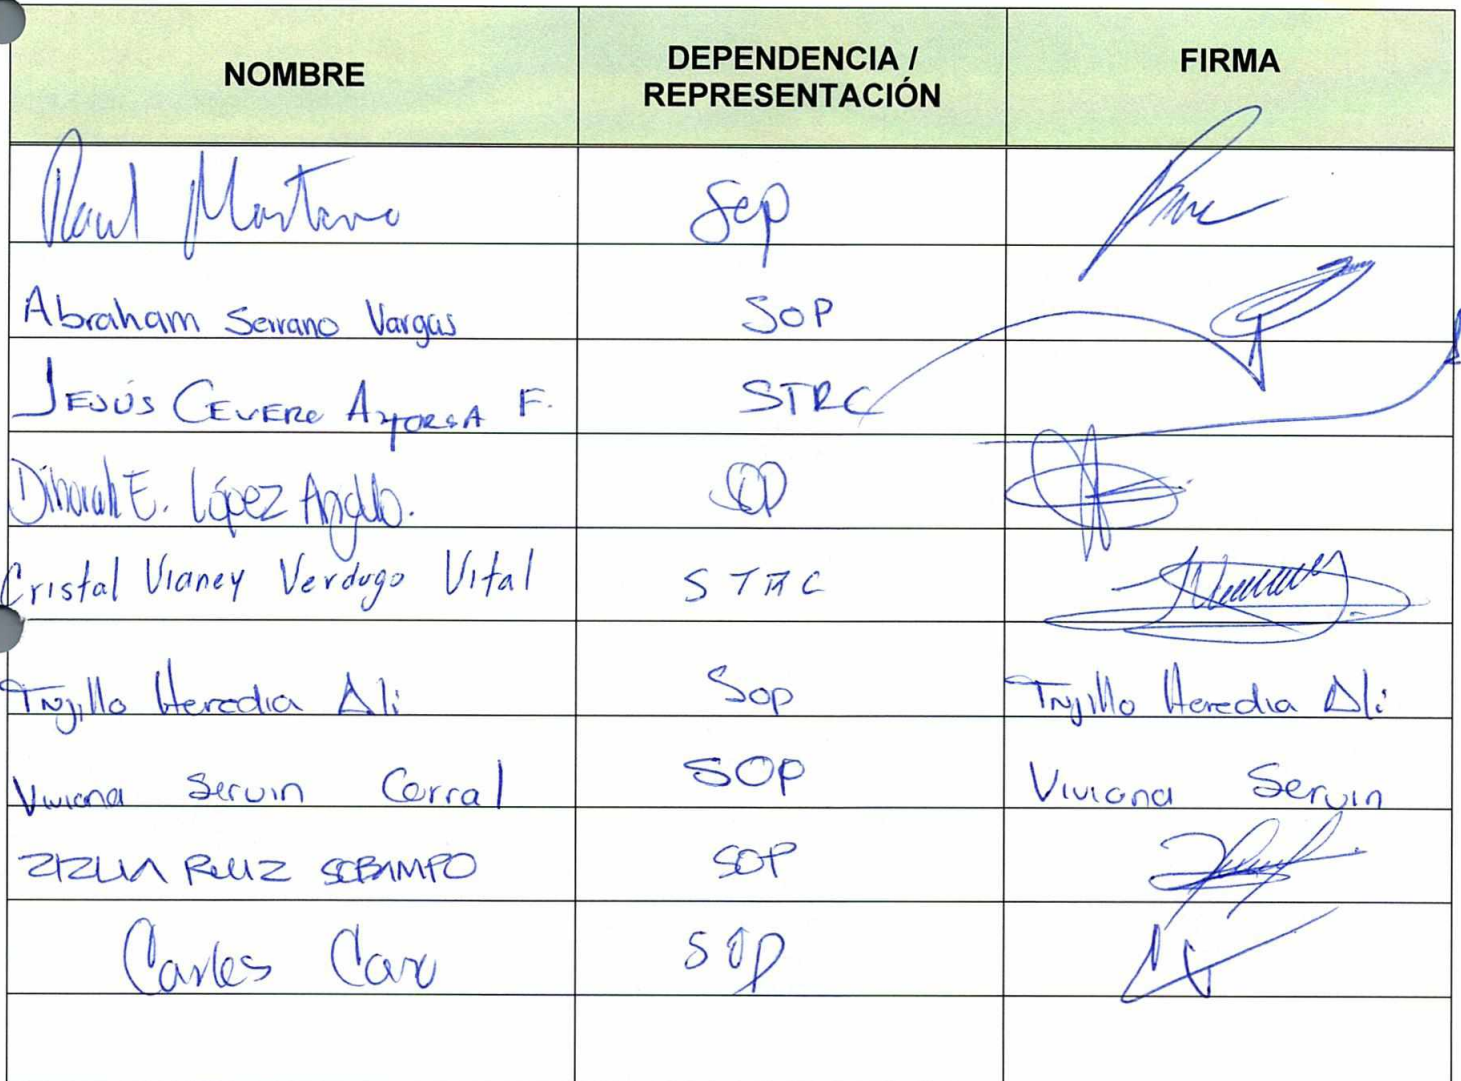 NOMBRE DEPENDENCIA / REPRESENTACIÓN FIRMA
Raul Montano Sep
Abraham Serrano Vargas SOP
JESÚS CEVERO AYORSA F. STRC
Dihorah E. López Angulo. SOP
Cristal Vianey Verdugo Vital STRC
Trujillo Heredia Ali Sop Trujillo Heredia Ali
Viviana Servin Corral SOP Viviana Servin
RUIZ SOP
Carlos Caro SOP